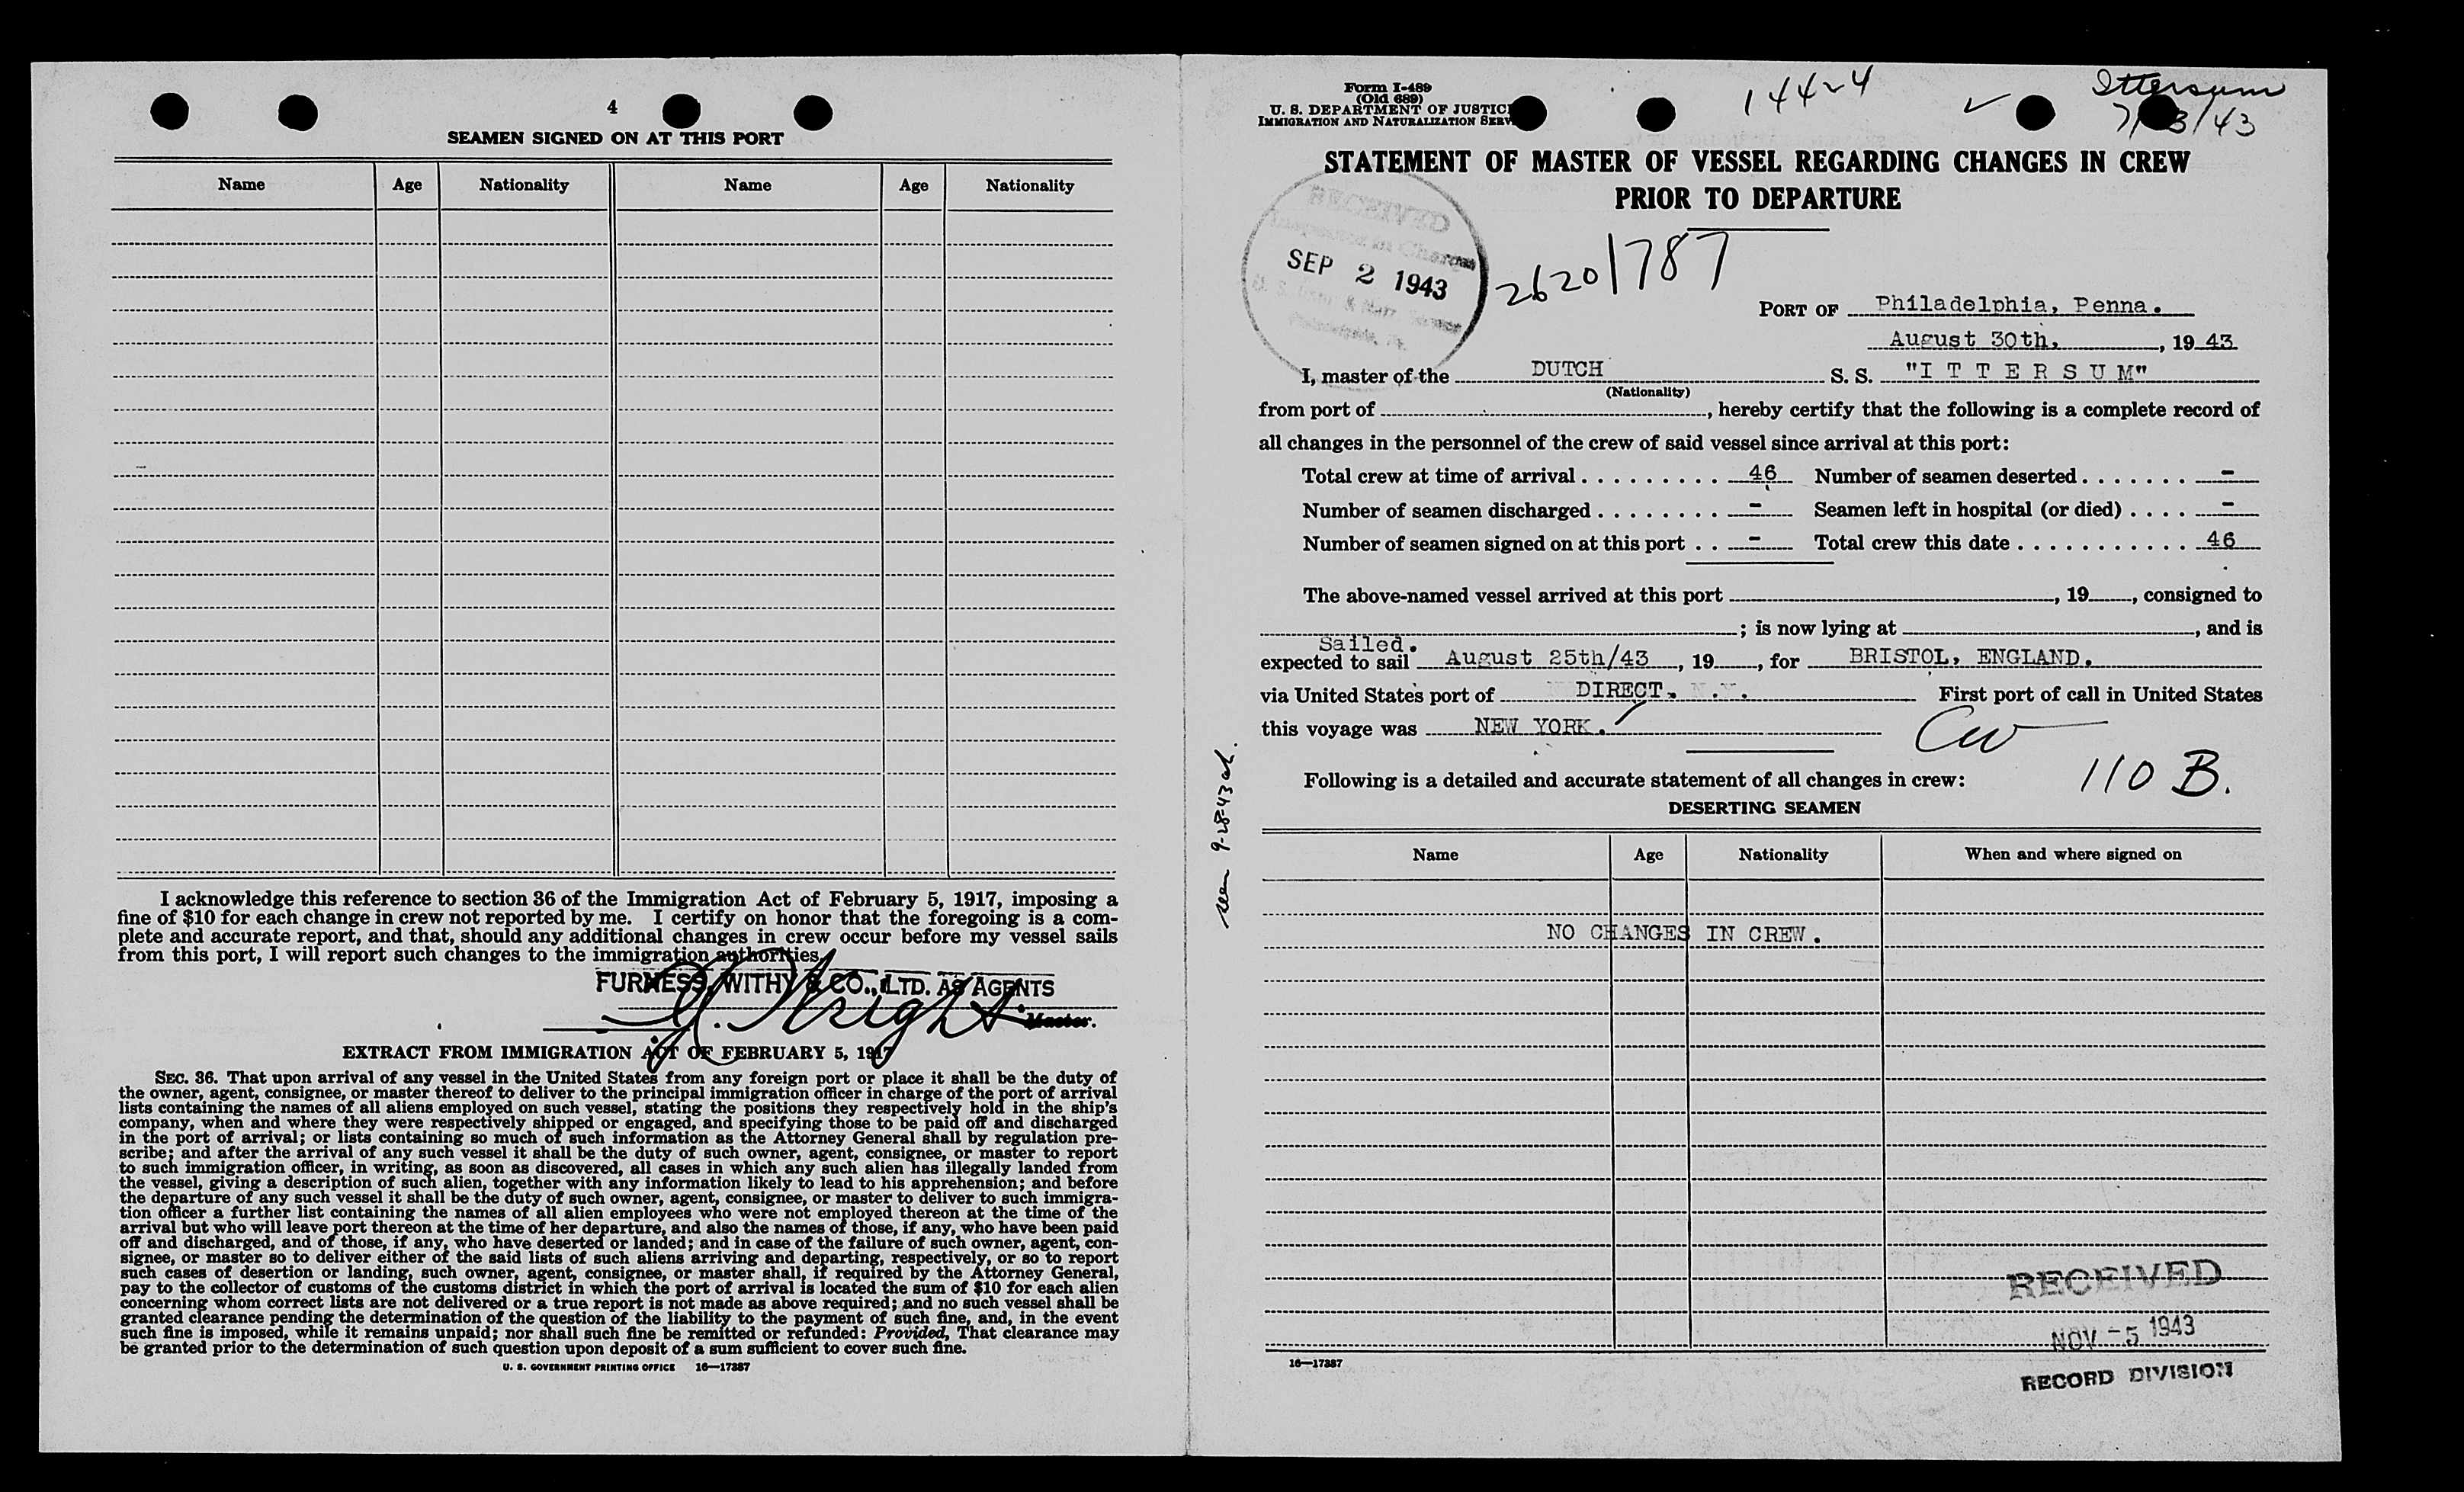 4
SEAMEN SIGNED ON AT THIS PORT
Name Age Nationality Name Age Nationality
I acknowledge this reference to section 36 of the Immigration Act of February 5, 1917, imposing a
fine of $10 for each change in crew not reported by me. I certify on honor that the foregoing is a com-
plete and accurate report, and that, should any additional changes in crew occur before my vessel sails
from this port, I will report such changes to the immigration authorities.
FURNESS, WITHY & CO., LTD. AS AGENTS
Wright
Master.
EXTRACT FROM IMMIGRATION ACT OF FEBRUARY 5, 1917
SEC. 36. That upon arrival of any vessel in the United States from any foreign port or place it shall be the duty of
the owner, agent, consignee, or master thereof to deliver to the principal immigration officer in charge of the port of arrival
lists containing the names of all aliens employed on such vessel, stating the positions they respectively hold in the ship's
company, when and where they were respectively shipped or engaged, and specifying those to be paid off and discharged
in the port of arrival; or lists containing so much of such information as the Attorney General shall by regulation pre-
scribe; and after the arrival of any such vessel it shall be the duty of such owner, agent, consignee, or master to report
to such immigration officer, in writing, as soon as discovered, all cases in which any such alien has illegally landed from
the vessel, giving a description of such alien, together with any information likely to lead to his apprehension; and before
the departure of any such vessel it shall be the duty of such owner, agent, consignee, or master to deliver to such immigra-
tion officer a further list containing the names of all alien employees who were not employed thereon at the time of the
arrival but who will leave port thereon at the time of her departure, and also the names of those, if any, who have been paid
off and discharged, and of those, if any, who have deserted or landed; and in case of the failure of such owner, agent, con-
signee, or master so to deliver either of the said lists of such aliens arriving and departing, respectively, or so to report
such cases of desertion or landing, such owner, agent, consignee, or master shall, if required by the Attorney General,
pay to the collector of customs of the customs district in which the port of arrival is located the sum of $10 for each alien
concerning whom correct lists are not delivered or a true report is not made as above required; and no such vessel shall be
granted clearance pending the determination of the question of the liability to the payment of such fine, and, in the event
such fine is imposed, while it remains unpaid; nor shall such fine be remitted or refunded: Provided, That clearance may
be granted prior to the determination of such question upon deposit of a sum sufficient to cover such fine.
U. S. GOVERNMENT PRINTING OFFICE 16—17387
Form I-489
(Old 689)
U. S. DEPARTMENT OF JUSTIC
IMMIGRATION AND NATURALIZATION SERV
Ittersum
STATEMENT OF MASTER OF VESSEL REGARDING CHANGES IN CREW
PRIOR TO DEPARTURE
RECEIVED
SEP 2 1943
2620/787
PORT OF Philadelphia, Penna.
August 30th, , 19 43
I, master of the DUTCH S. S. "I T T E R S U M"
(Nationality)
from port of , hereby certify that the following is a complete record of
all changes in the personnel of the crew of said vessel since arrival at this port:
Total crew at time of arrival . . . . . . . . . 46 Number of seamen deserted . . . . . . . -
Number of seamen discharged . . . . . . . . - Seamen left in hospital (or died) . . . . -
Number of seamen signed on at this port . . - Total crew this date . . . . . . . . . . . 46
The above-named vessel arrived at this port , 19 , consigned to
; is now lying at , and is
Sailed.
expected to sail August 25th/43 , 19 , for BRISTOL, ENGLAND.
via United States port of DIRECT. First port of call in United States
this voyage was NEW YORK.
Following is a detailed and accurate statement of all changes in crew:
110 B.
seen 9-28-43
DESERTING SEAMEN
Name Age Nationality When and where signed on
NO CHANGES IN CREW.
RECEIVED
NOV -5 1943
RECORD DIVISION
16—17387